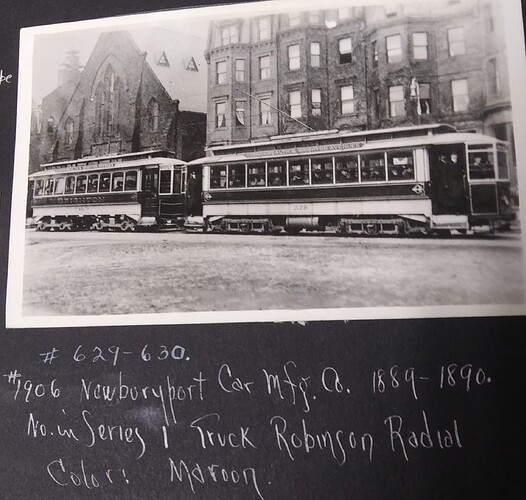 BRIGHTON
# 629-630.
#1906 Newburyport Car Mfg. Co. 1889-1890.
No. in Series 1 Truck Robinson Radial
Color: Maroon.